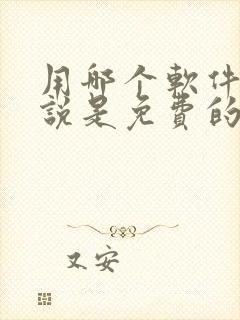 用哪个軟件
說是免費的
又安